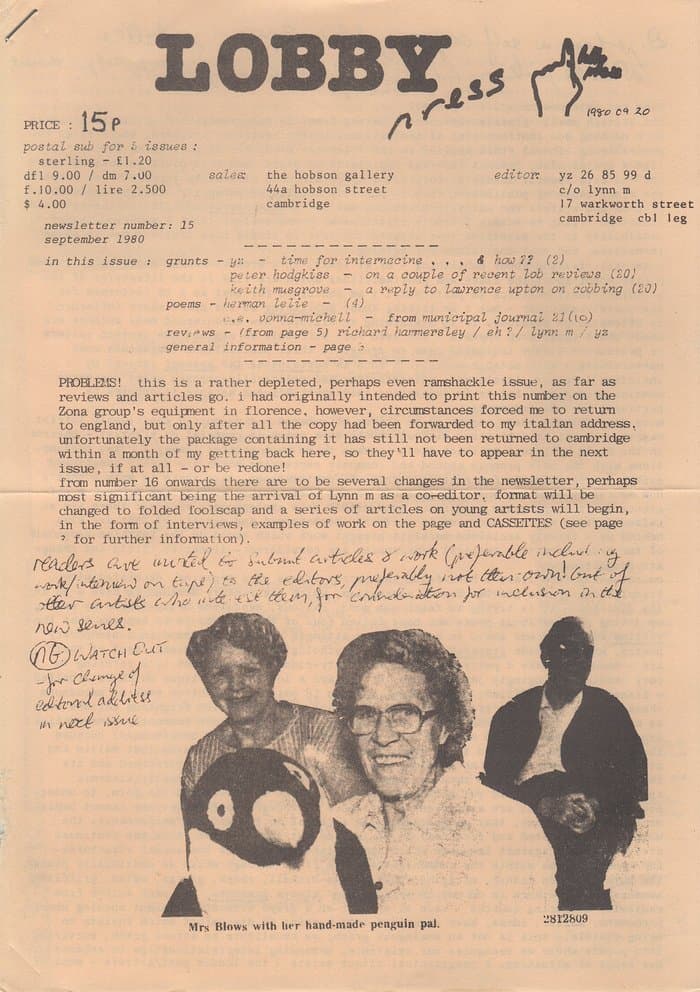 LOBBY
press
1980 09 20
PRICE : 15P
postal sub for 5 issues :
sterling - £1.20
dfl 9.00 / dm 7.00
f.10.00 / lire 2.500
$ 4.00
sales: the hobson gallery
44a hobson street
cambridge
editor: yz 26 85 99 d
c/o lynn m
17 warkworth street
cambridge cb1 1eg
newsletter number: 15
september 1980
in this issue : grunts - yz - time for internecine . . . & how?? (2)
peter hodgkiss - on a couple of recent lob reviews (20)
keith musgrove - a reply to lawrence upton on cobbing (20)
poems - herman lelie - (4)
c.e. vonna-michell - from municipal journal 21(10)
reviews - (from page 5) richard hammersley / eh ? / lynn m / yz
general information - page
PROBLEMS! this is a rather depleted, perhaps even ramshackle issue, as far as
reviews and articles go. i had originally intended to print this number on the
Zona group's equipment in florence. however, circumstances forced me to return
to england, but only after all the copy had been forwarded to my italian address.
unfortunately the package containing it has still not been returned to cambridge
within a month of my getting back here, so they'll have to appear in the next
issue, if at all - or be redone!
from number 16 onwards there are to be several changes in the newsletter, perhaps
most significant being the arrival of Lynn m as a co-editor. format will be
changed to folded foolscap and a series of articles on young artists will begin,
in the form of interviews, examples of work on the page and CASSETTES (see page
? for further information).
readers are invited to submit articles & work (preferable including
work/interview on tape) to the editors, preferably not their own! but of
other artists who interest them, for consideration for inclusion in the
new series.
NG WATCH OUT
- for change of
editorial address
in next issue
Mrs Blows with her hand-made penguin pal.
2812809